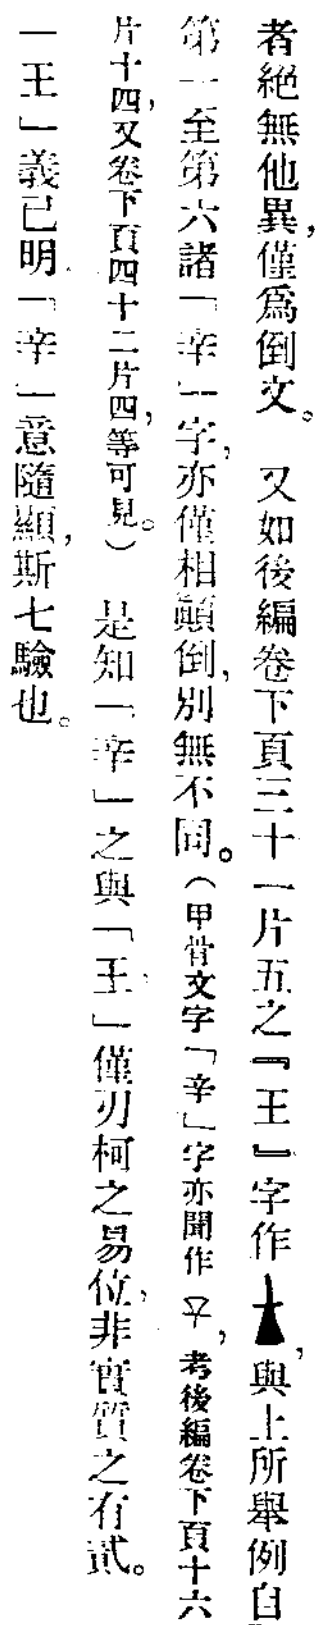 者絕無他異,僅爲倒文。 又如後編卷下頁三十一片五之『王』字作 ,與上所舉例自
第一至第六諸「辛」字,亦僅相顚倒,別無不同。(甲骨文字「辛」字亦間作 ,考後編卷下頁十六
片十四,又卷下頁四十二片四,等可見。) 是知「辛」之與「王」僅刃柯之易位,非實質之有貳。
「王」義已明「辛」意隨顯,斯七驗也。